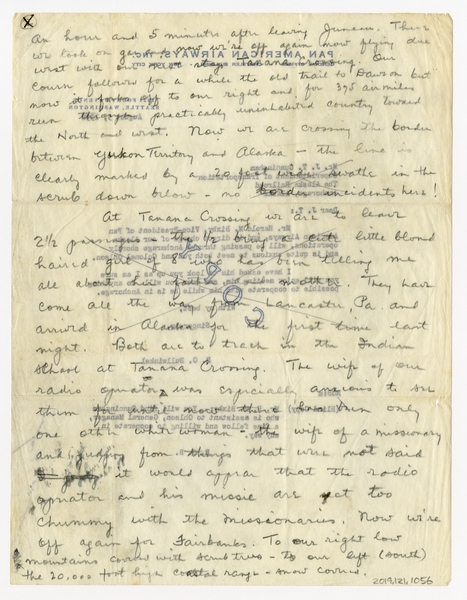 X
An hour and 5 minutes after leaving Juneau. There
we took on gas & now we're off again now flying due
west with our next stop Tanana Crossing. Our
course follows for a while the old trail to Dawson but
now it forks off to our right and, for 395 air miles
run through practically uninhabited country toward
the North and west. Now we are crossing the border
between Yukon Territory and Alaska – the line is
clearly marked by a 20 foot wide swath in the
scrub down below – no border incidents here!
At Tanana Crossing we are to leave
2 1/2 passengers – the 1/2 being a cute little blond
haired girl of 8 who has been telling me
all about her father and mother. They have
come all the way from Lancaster, Pa. and
arrived in Alaska for the first time last
night. Both are to teach in the Indian
School at Tanana Crossing. The wife of our
radio operator was especially anxious to see
them for until now there has been only
one other white woman the wife of a missionary
and judging from things that were not said
it would appear that the radio
operator and his missie are not too
chummy with the missionaries. Now we're
off again for Fairbanks. To our right low
mountains covered with scrub trees – to our left (south)
the 20,000 foot high coastal range – snow covered.
2019.121.1056